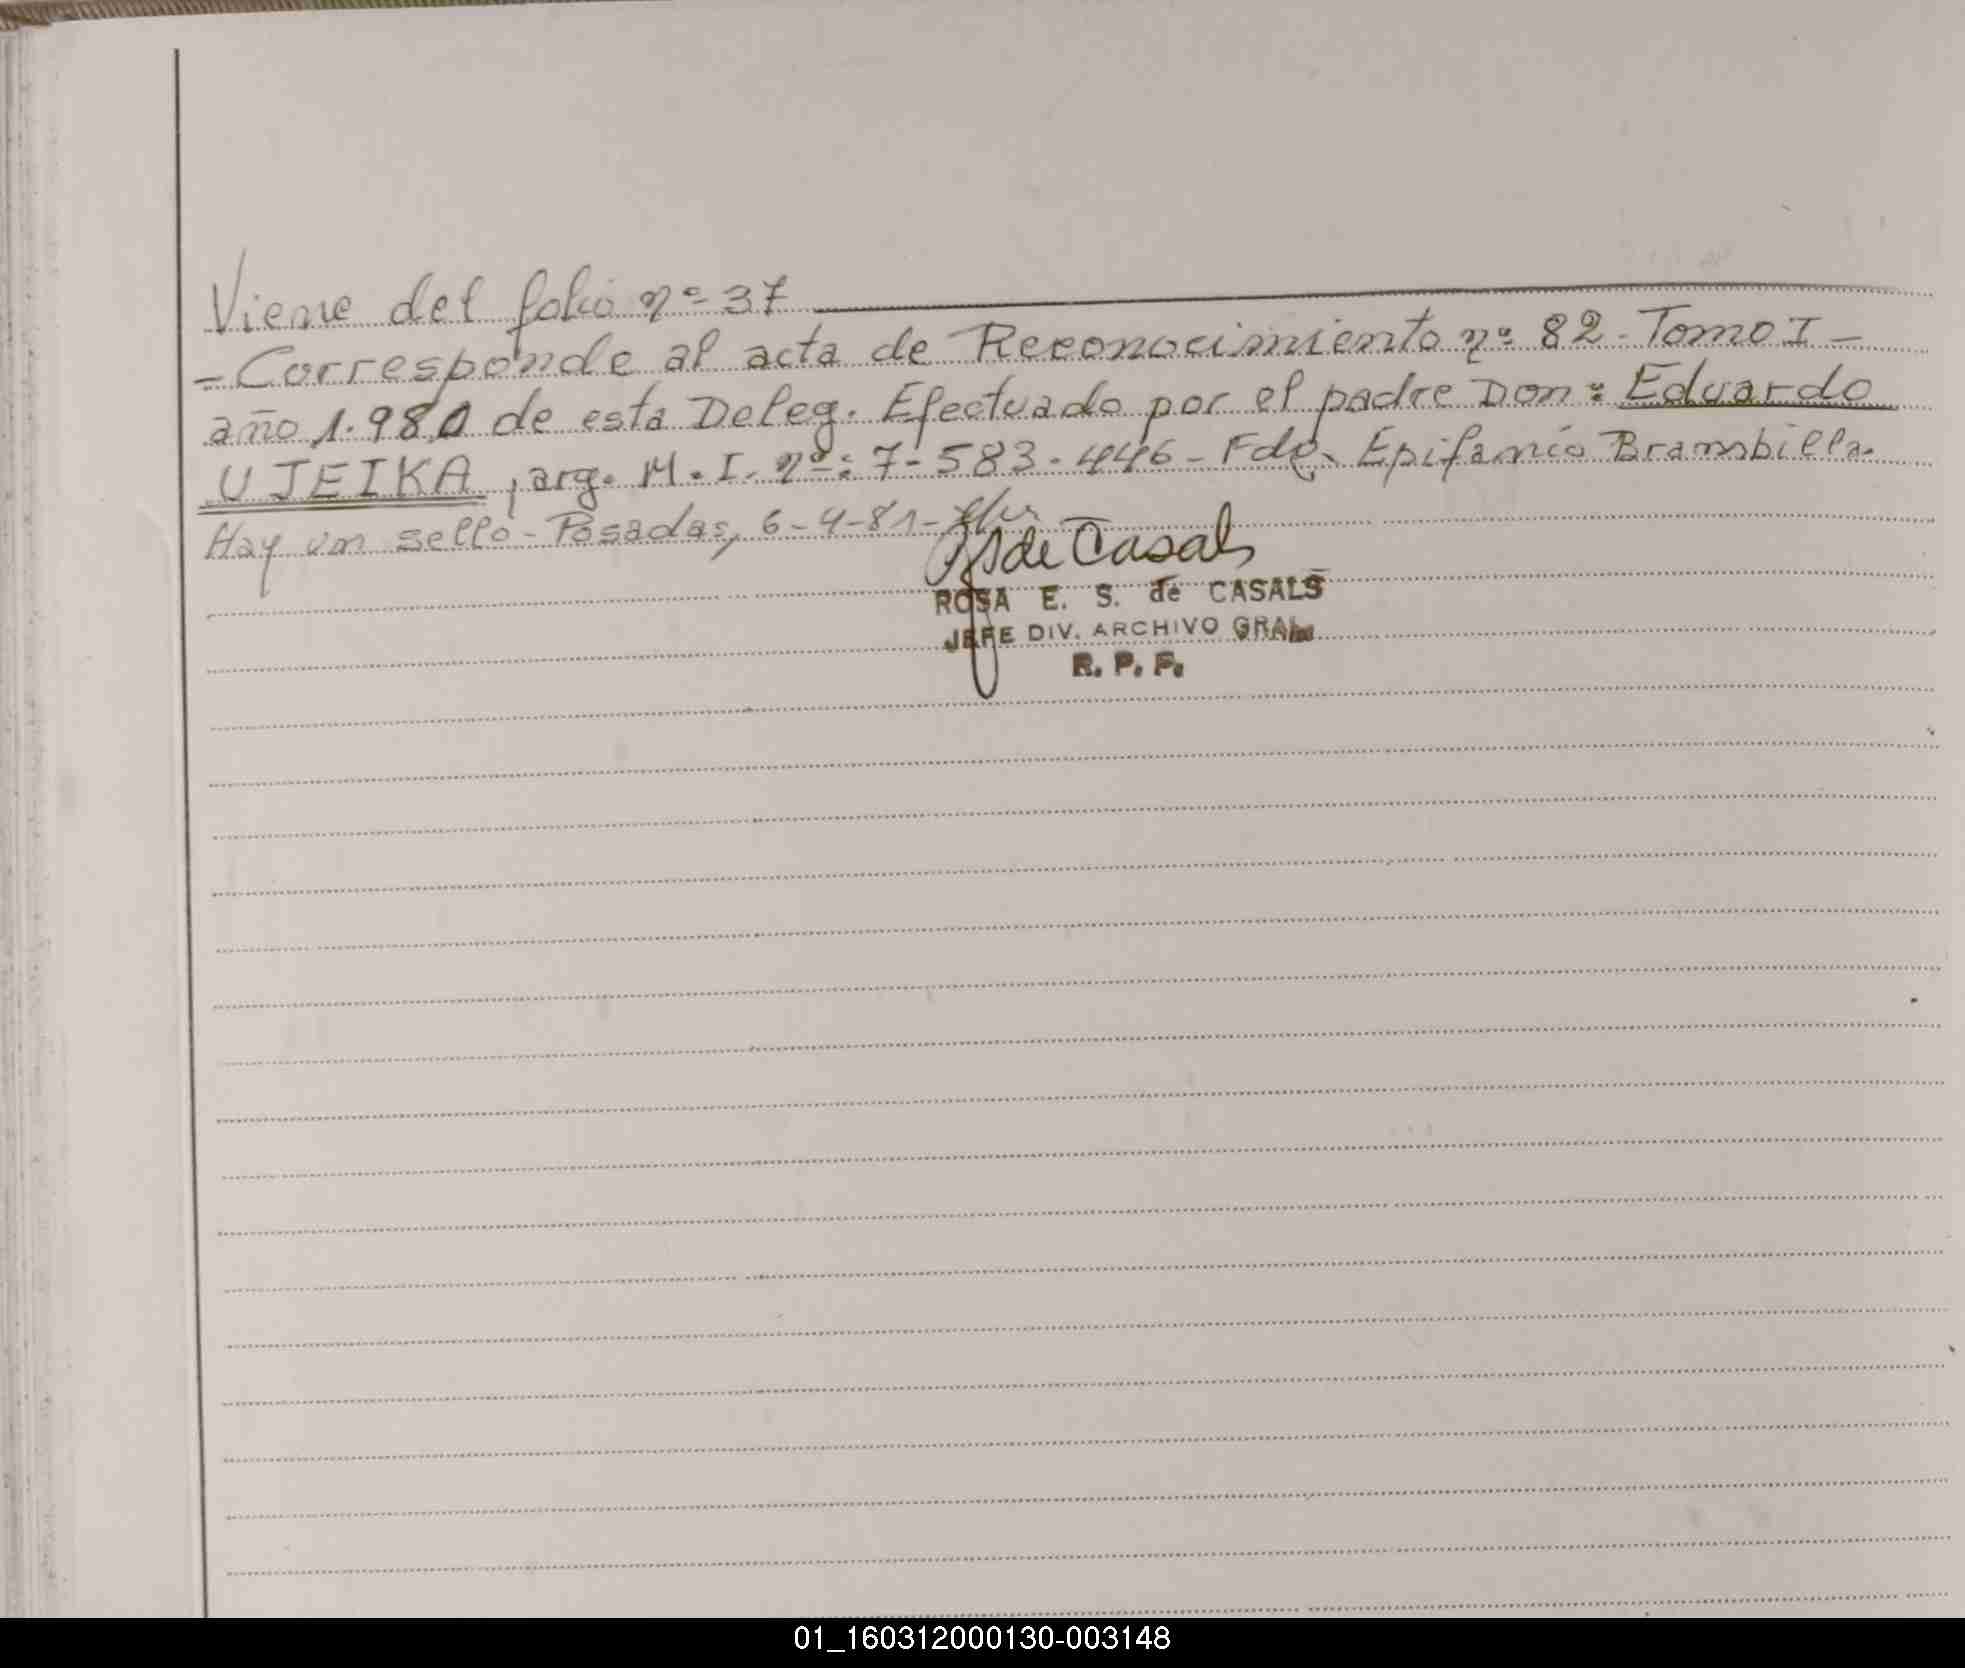 Viene del folio nº 37
- Corresponde al acta de Reconocimiento nº 82 - Tomo I -
año 1.980 de esta Deleg. Efectuado por el padre Don: Eduardo
UJEIKA, arg. M. I. nº: 7-583-446 - Fdo. Epifanio Brambilla.
Hay un sello - Posadas, 6-4-81-
de Casals
ROSA E. S. de CASALS
JEFE DIV. ARCHIVO GRAL.
R. P. P.
01_160312000130-003148